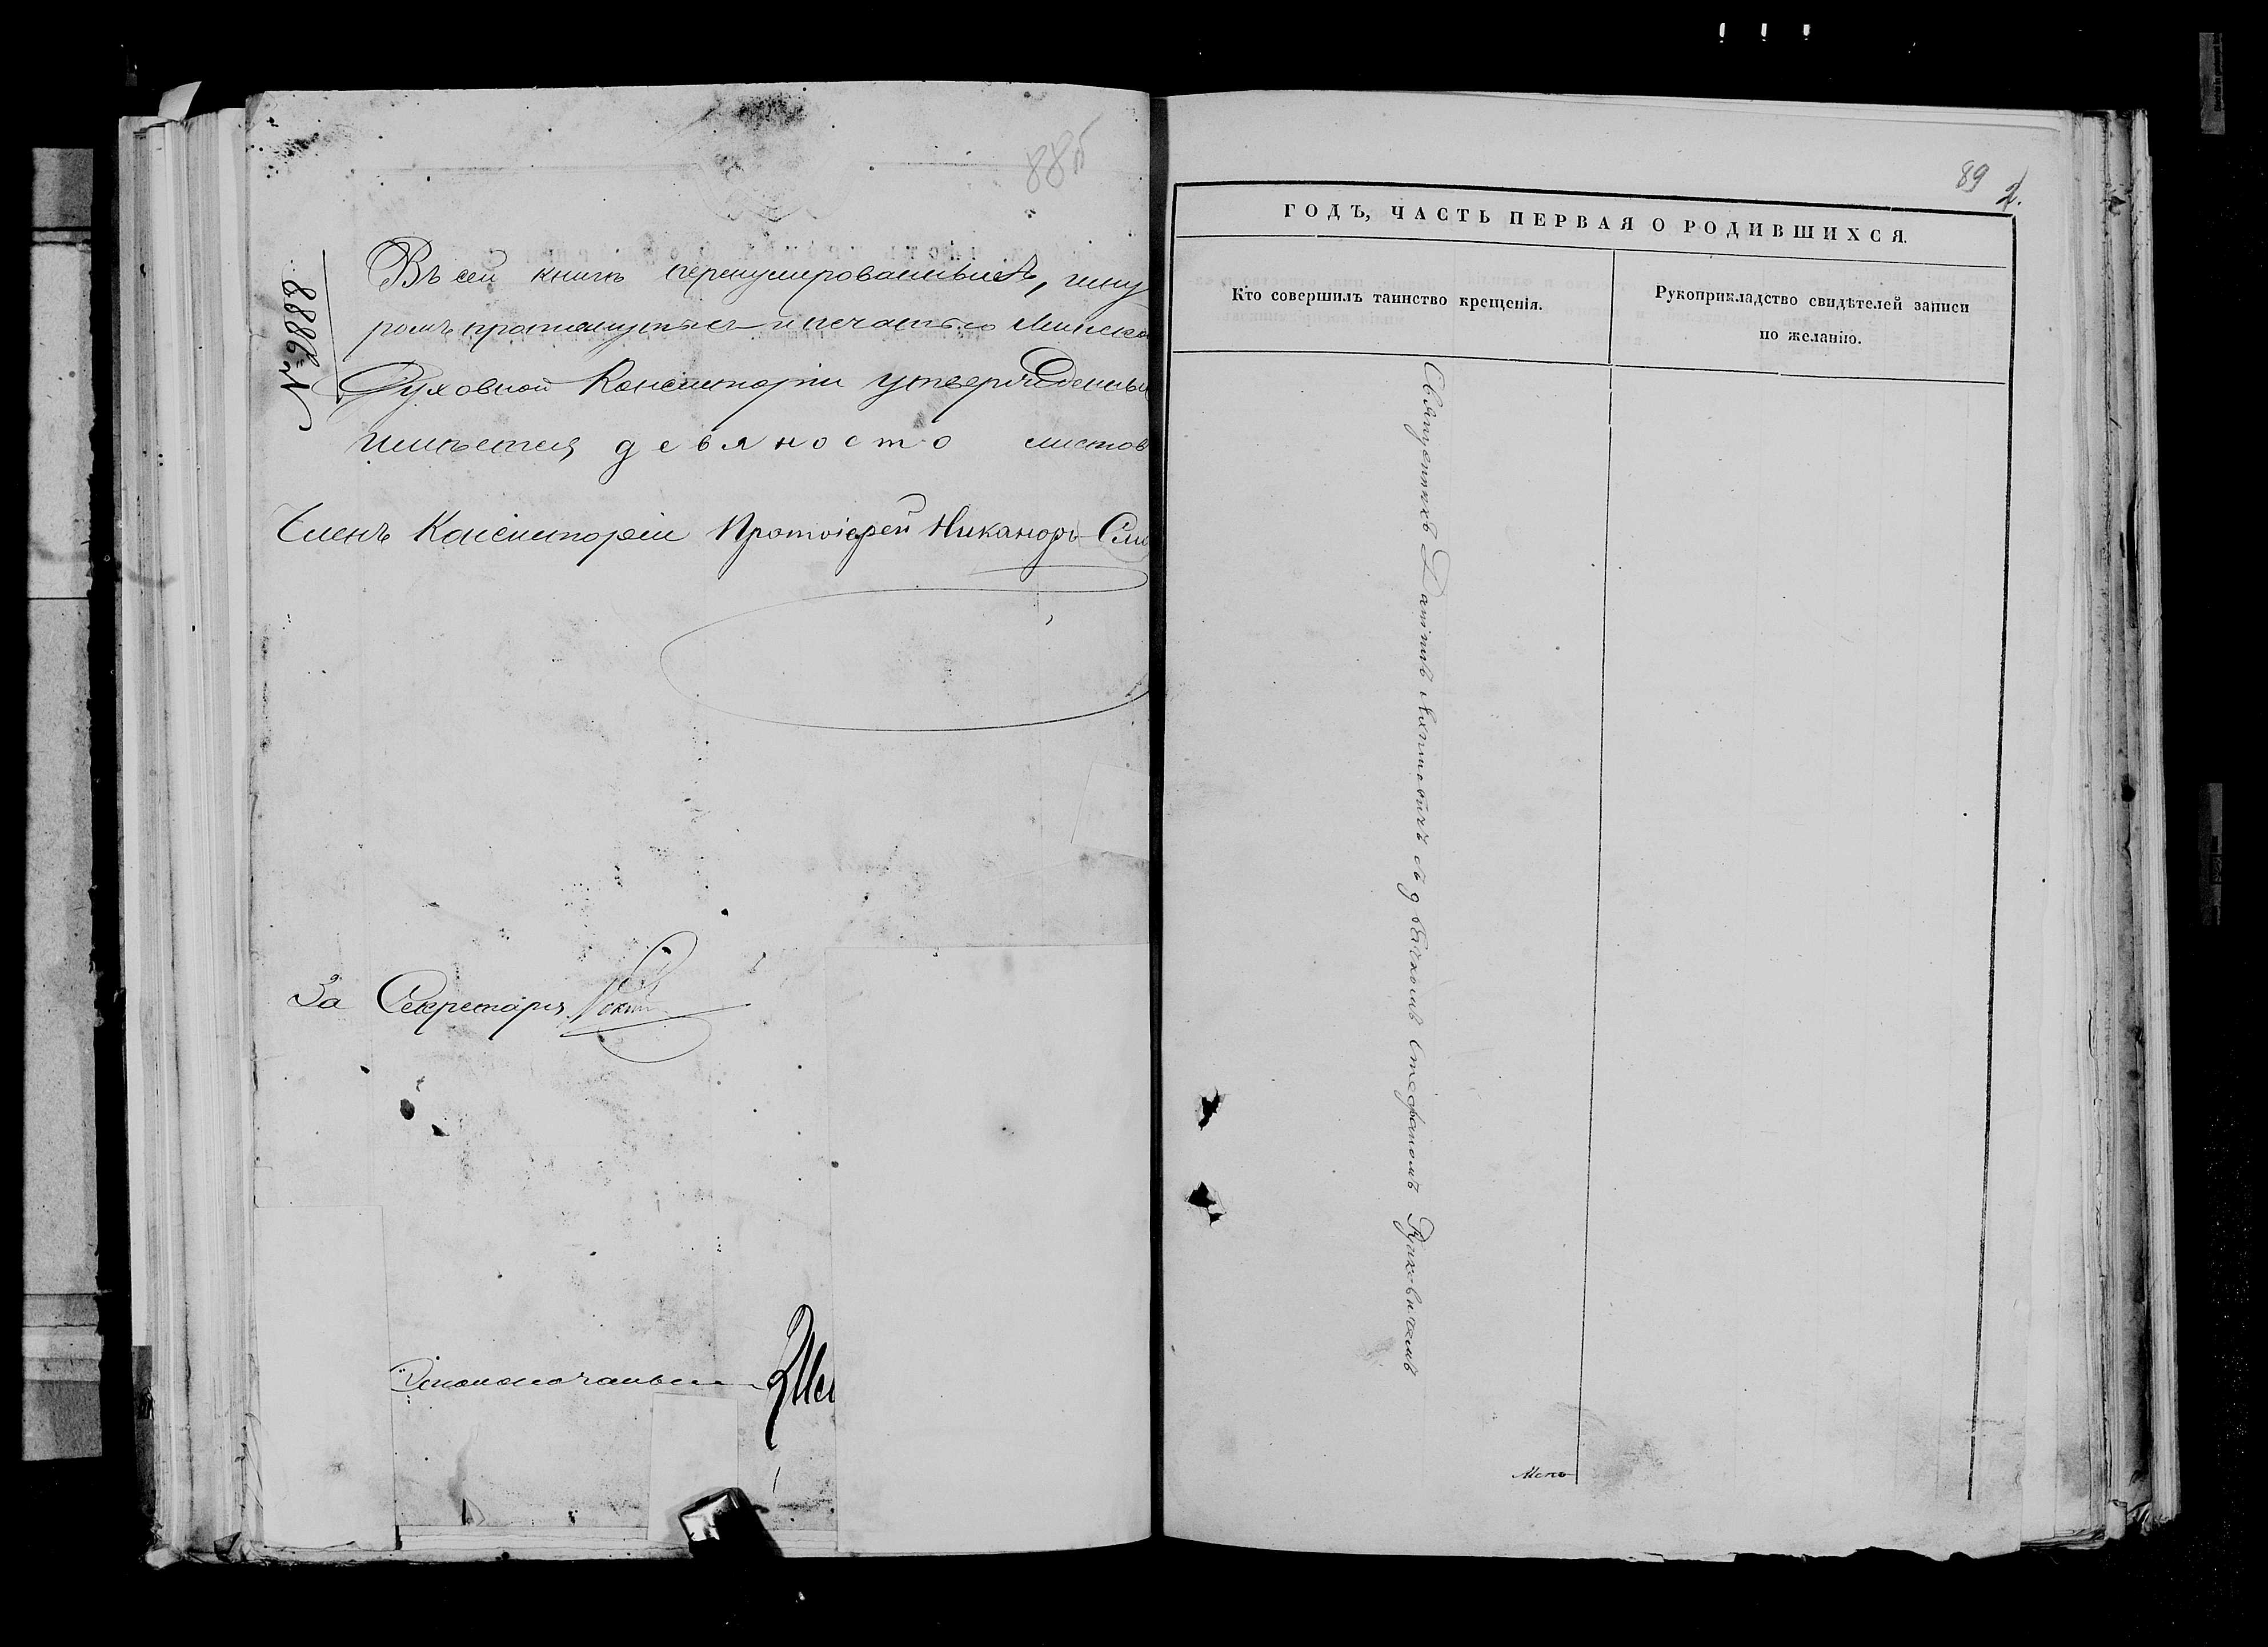 88б
№ 8888
Въ сей книгѣ перенумерованныхъ, шну
ромъ протянутыхъ и печатью Минско
Духовной Консисторіи утвержденны
имѣется девяносто листов
Членъ Консисторіи Протоіерей Никаноръ См
За Секретаря
Столоначальн
89 2.
ГОДЪ, ЧАСТЬ ПЕРВАЯ О РОДИВШИХСЯ.
Кто совершилъ таинство крещенія.
Рукоприкладство свидѣтелей записи
по желанію.
Священникъ Даніилъ съ дьячкомъ Стефаномъ